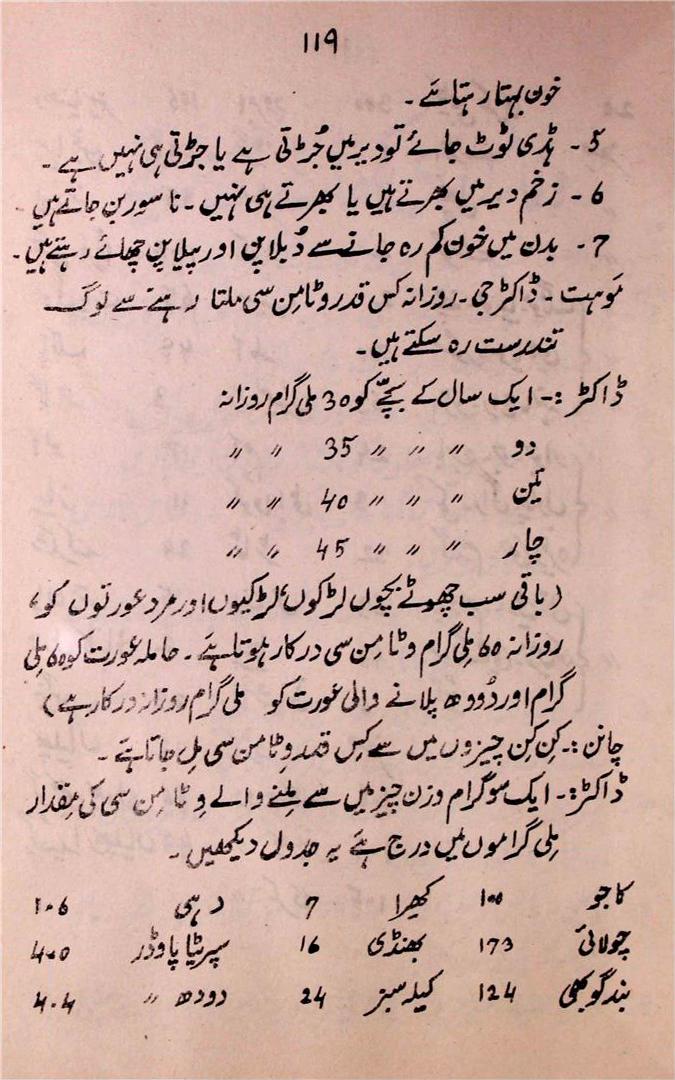 ۱۱۹
خون بہتا رہتا ہے ۔
5 ۔ ہڈی ٹوٹ جائے تو دیر میں جُڑتی ہے یا جڑتی ہی نہیں ہے ۔
6 ۔ زخم دیر میں بھرتے ہیں یا بھرتے ہی نہیں ۔ ناسور بن جاتے ہیں
7 ۔ بدن میں خون کم رہ جانے سے دُبلا پن اور پیلا پن چھائے رہتے ہیں ۔
موہت ۔ ڈاکٹر جی ۔ روزانہ کس قدر وٹامن سی ملتا رہنے سے لوگ
تندرست رہ سکتے ہیں ۔
ڈاکٹر :۔ ایک سال کے بچّے کو 30 ملی گرام روزانہ
دو 〃 〃 〃 35 〃 〃
تین 〃 〃 〃 40 〃 〃
چار 〃 〃 〃 45 〃 〃
(باقی سب چھوٹے بچوں لڑکوں، لڑکیوں اور مرد عورتوں کو،
روزانہ 60 مِلی گرام وٹامِن سی درکار ہوتا ہے ۔ حاملہ عورت کو 60 مِلی
گرام اور دُودھ پلانے والی عورت کو ملی گرام روزانہ درکار ہے)
چانن :۔ کِن کِن چیزوں میں سے کِس قدر وِٹامن سی مِل جاتا ہے ۔
ڈاکٹر:۔ ایک سو گرام وزن چیز میں سے مِلنے والے وِٹامِن سی کی مِقدار
مِلی گراموں میں درج ہے یہ جدول دیکھیں ۔
کاجو 100 کھیرا 7 دہی 1.6
چولائی 173 بھنڈی 16 سپریٹا پاوڈر 4.0
بندگوبھی 124 کیلہ سبز 24 دودھ 〃 4.4